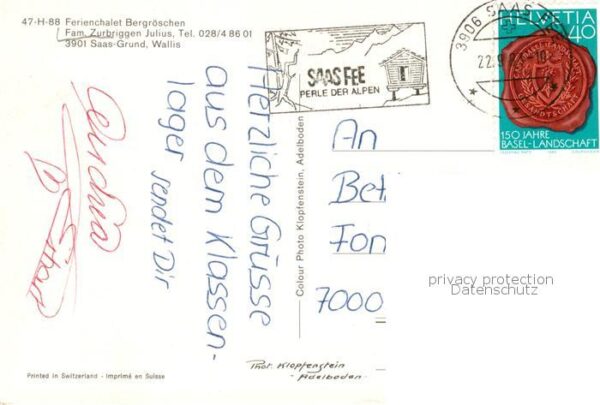 47-H-88 Ferienchalet Bergröschen
Fam. Zurbriggen Julius, Tel. 028/4 86 01
3901 Saas-Grund, Wallis
SAAS FEE
PERLE DER ALPEN
3906 SAAS
22.9.8
HELVETIA
40
150 JAHRE
BASEL-LANDSCHAFT
Herzliche Grüsse
aus dem Klassen-
lager sendet Dir
Colour Photo Klopfenstein, Adelboden
An
Bet
Fon
7000
privacy protection
Datenschutz
Phot. Klopfenstein
- Adelboden
Printed in Switzerland - Imprimé en Suisse